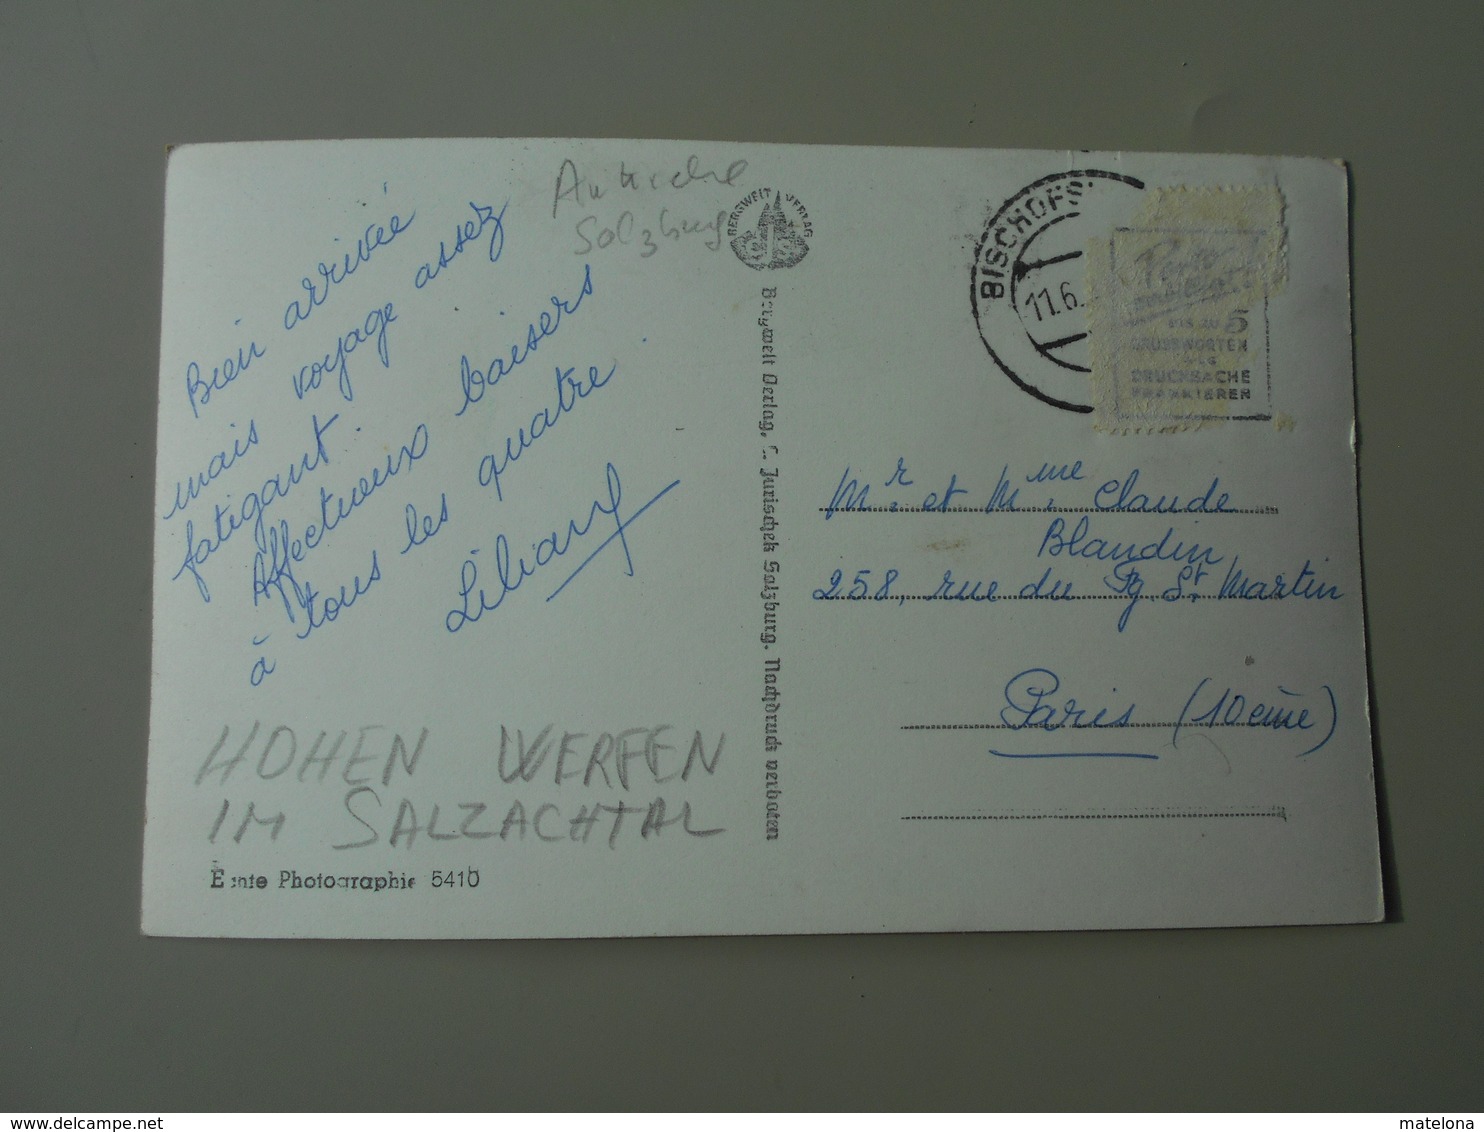 Autriche
Salzburg
BERGWELT VERLAG
Bien arrivée
mais voyage assez
fatigant.
Affectueux baisers
à tous les quatre.
Liliane
HOHEN WERFEN
IM SALZACHTAL
Echte Photographie 5410
Bergwelt Verlag, C. Jurischek Salzburg. Nachdruck verboten
BISCHOFS
11.6.
BIS ZU 5
GRUSSWORTEN
ALS
DRUCKSACHE
FRANKIEREN
Mr. et Mme. Claude
Blandin
258, rue du Fg. St. Martin
Paris (10ème)
matelona